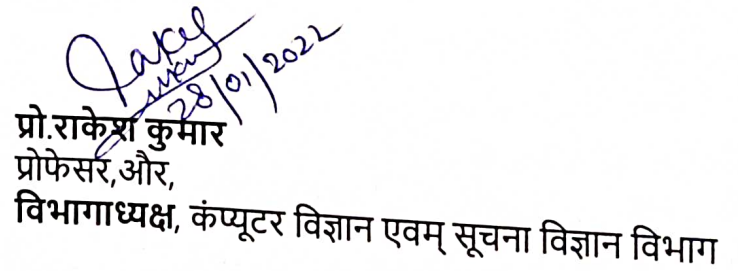 28/01/2022
प्रो.राकेश कुमार
प्रोफेसर,और,
विभागाध्यक्ष, कंप्यूटर विज्ञान एवम् सूचना विज्ञान विभाग